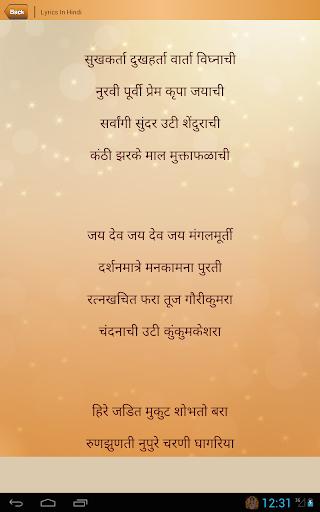 Back
Lyrics In Hindi
सुखकर्ता दुखहर्ता वार्ता विघ्नाची
नुरवी पूर्वी प्रेम कृपा जयाची
सर्वांगी सुंदर उटी शेंदुराची
कंठी झरके माल मुक्ताफळाची
जय देव जय देव जय मंगलमूर्ती
दर्शनमात्रे मनकामना पुरती
रत्नखचित फरा तूज गौरीकुमरा
चंदनाची उटी कुंकुमकेशरा
हिरे जडित मुकुट शोभतो बरा
रुणझुणती नुपुरे चरणी घागरिया
12:31